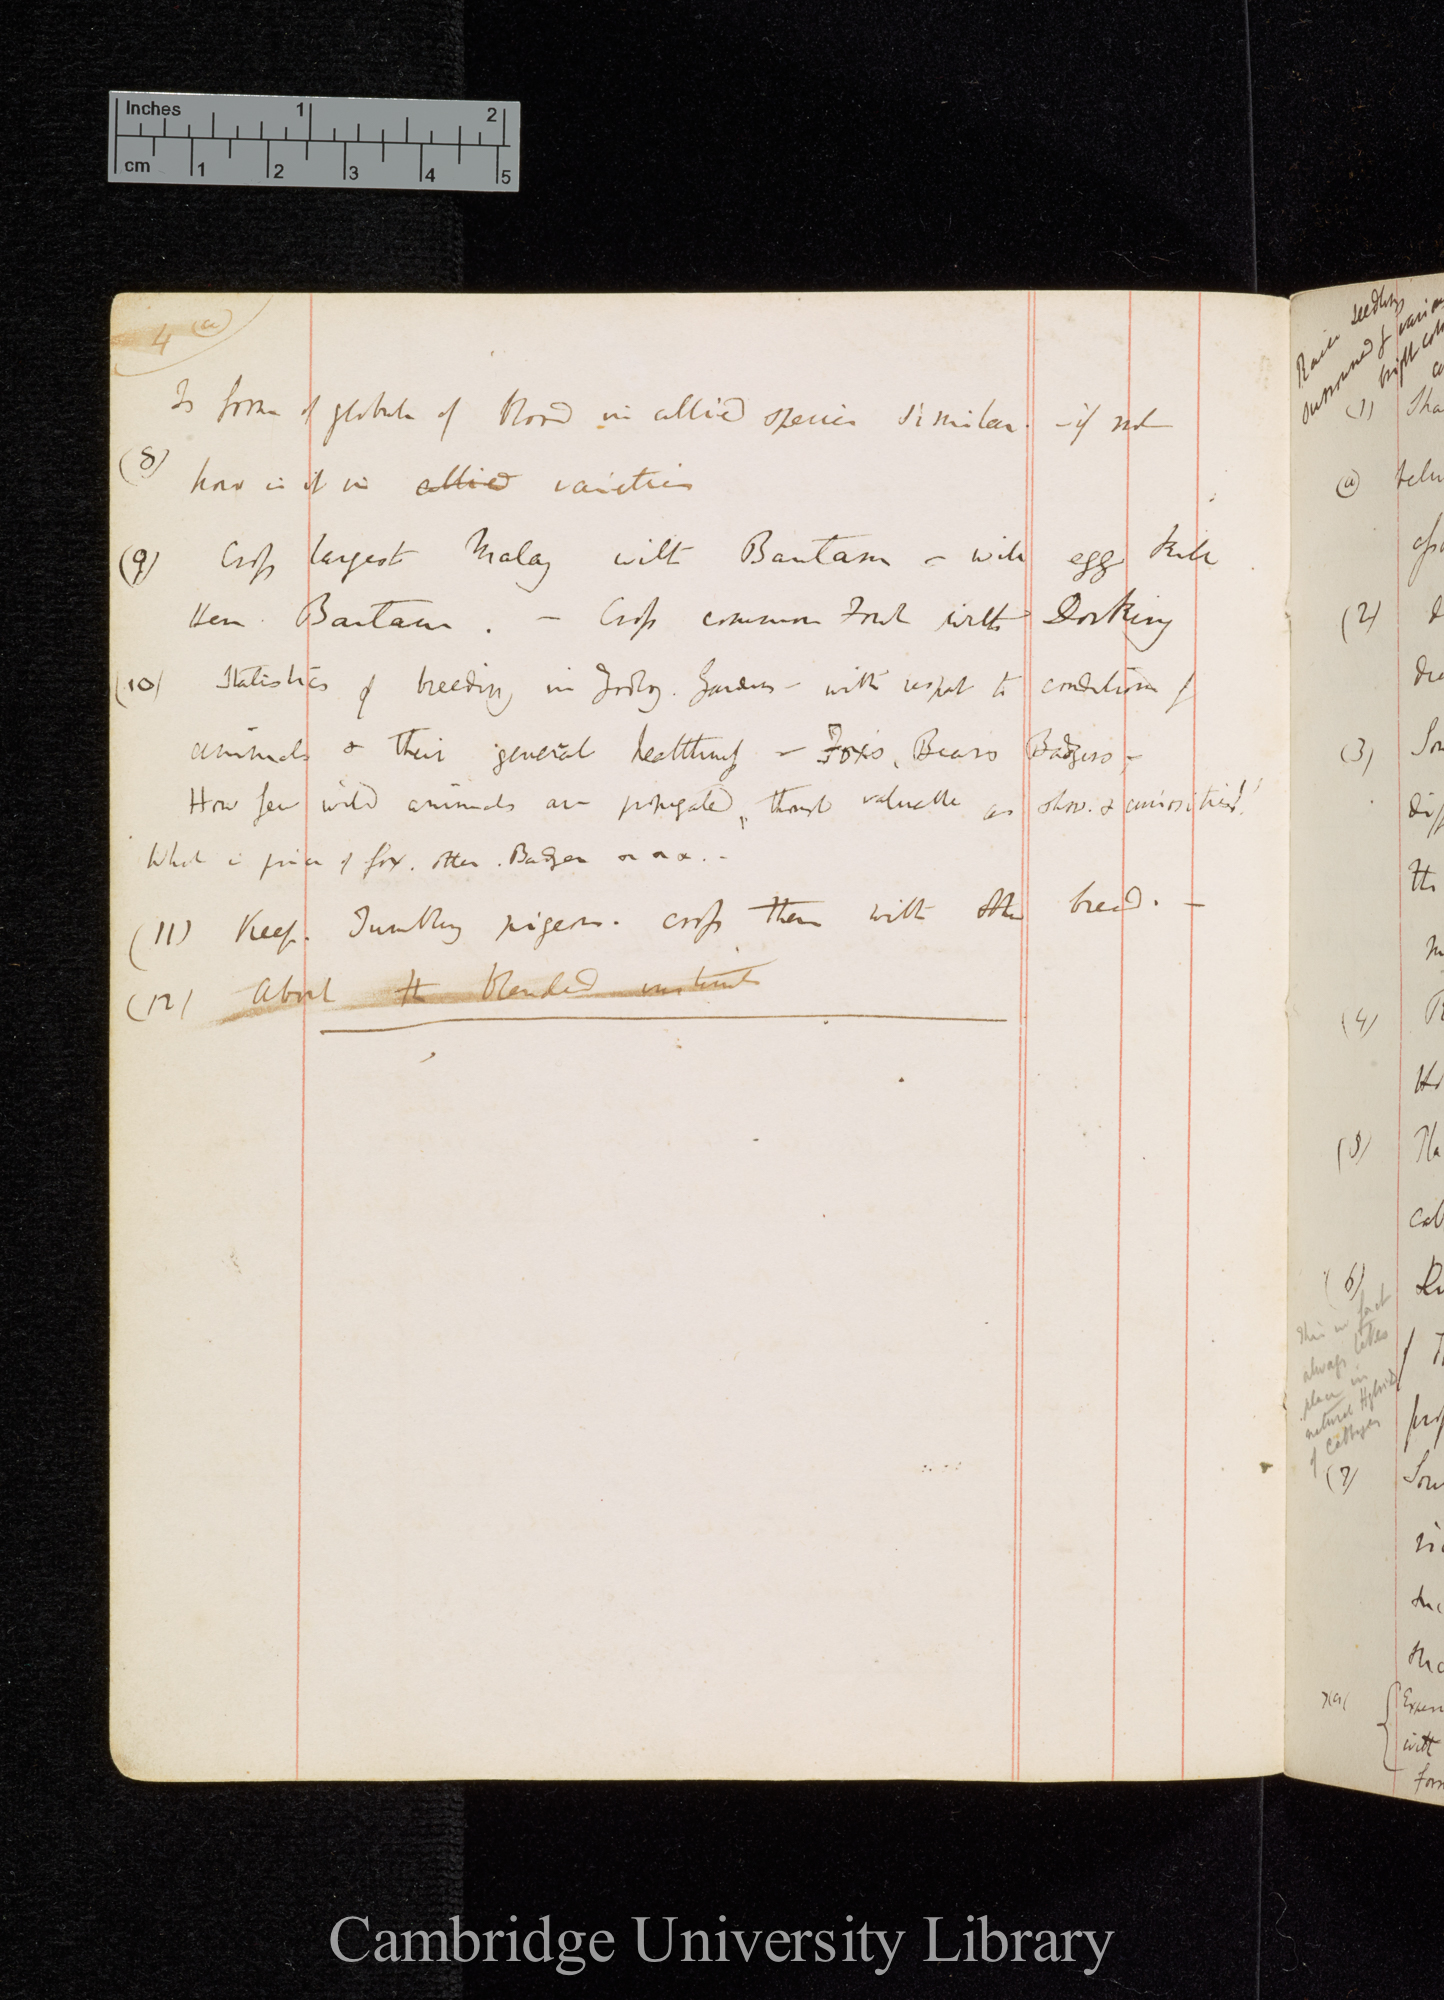 Inches 1 2
cm 1 2 3 4 5
4 (a)
Is form of globule of blood in allied species similar. – if not
(8)
how is it in allied varieties
(9) Cross largest Malay with Bantam – will egg kill
Hen Bantam. – Cross common Fowl with Dorking
(10) Statistics of breeding in Zoolog. Gardens – with respect to condition of
animals & their general healthiness – Foxes, Bears Badgers –
How few wild animals are propagated, though valuable as show. & curiosities!!
What is price of fox. otter. Badger &c &c. –
(11) Keep. Tumbling pigeons. cross them with other breed. –
(12) About the blended instincts
Raise seedlings
surround of various
bright
(1)
(a)
(2)
(3)
(4)
(5)
(6)
this in fact
always takes
place in
natural Hybrid
of Cabbages
(7)
7(a)
with
Cambridge University Library